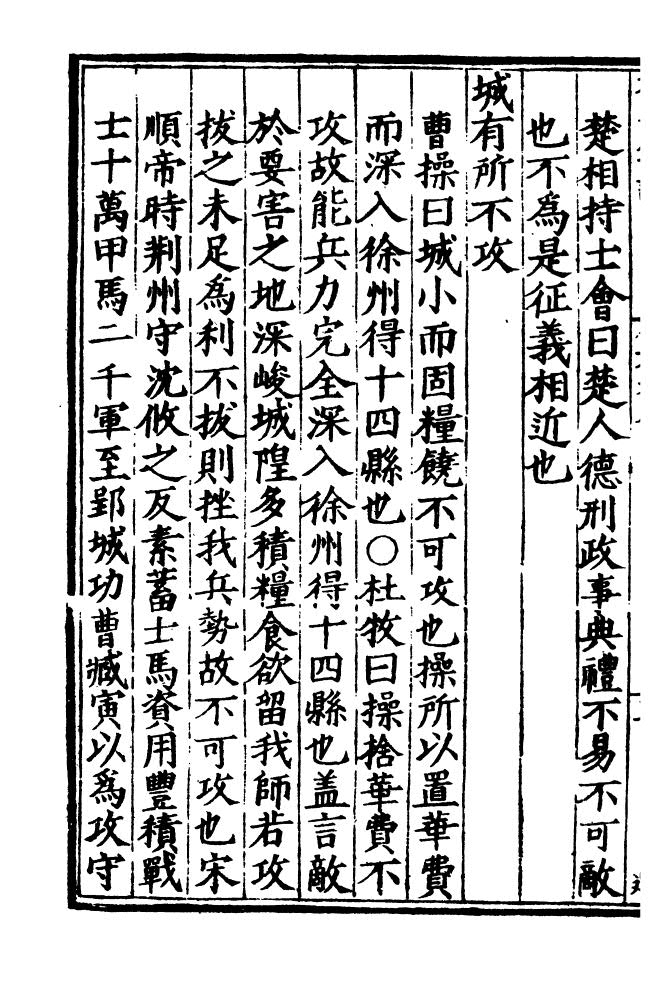 楚相持士會曰楚人德刑政事典禮不易不可敵
也不爲是征義相近也
城有所不攻
曹操曰城小而固糧饒不可攻也操所以置華費
而深入徐州得十四縣也○杜牧曰操捨華費不
攻故能兵力完全深入徐州得十四縣也盖言敵
於要害之地深峻城隍多積糧食欲留我師若攻
拔之未足爲利不拔則挫我兵勢故不可攻也宋
順帝時荆州守沈攸之反素蓄士馬資用豐積戰
士十萬甲馬二千軍至郢城功曹臧寅以爲攻守